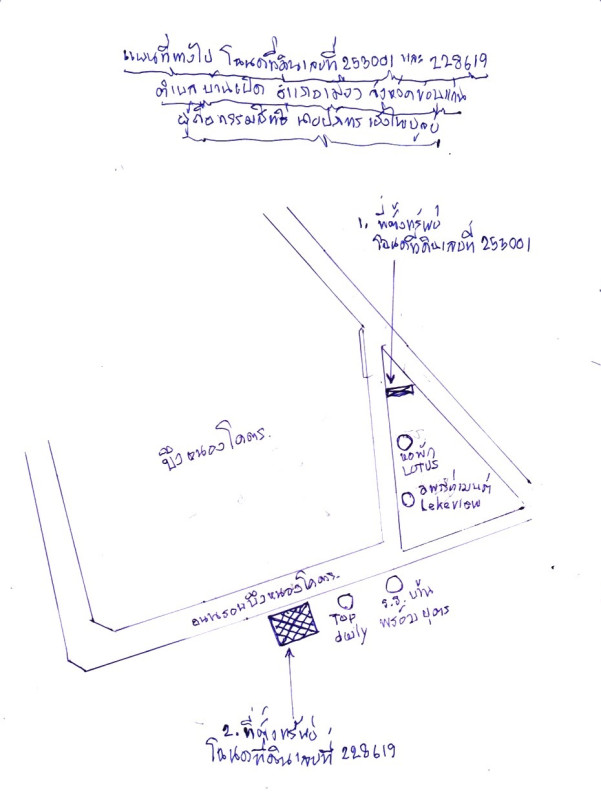 แผนที่ทางไป โฉนดที่ดินเลขที่ 253001 และ 228619
ตำบลบ้านเป็ด อำเภอเมือง จังหวัดขอนแก่น
ผู้ถือกรรมสิทธิ์
1. ที่ตั้งทรัพย์
โฉนดที่ดินเลขที่ 253001
บึงหนองโคตร
หอพัก
LOTUS
อพาร์ทเมนต์
Lakeview
ถนนรอบบึงหนองโคตร
Top
daily
ร.ร. บ้าน
2. ที่ตั้งทรัพย์
โฉนดที่ดินเลขที่ 228619